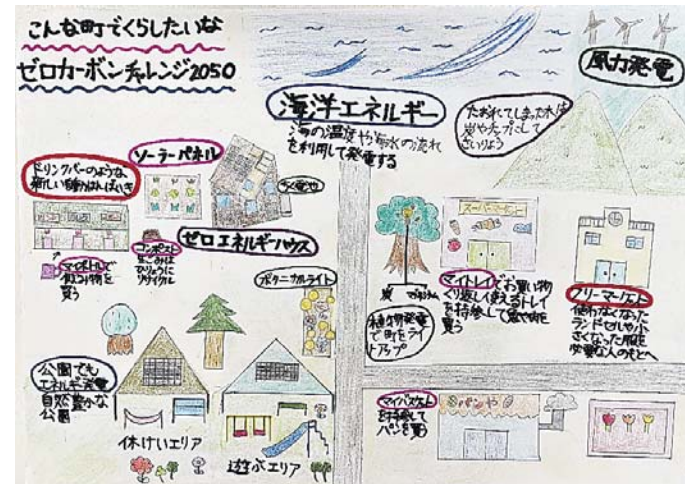 こんな町でくらしたいな
ゼロカーボンチャレンジ2050
風力発電
海洋エネルギー
海の温度や海水の流れ
を利用して発電する
たおれてしまった木は
炭やチップにして
さいりよう
ソーラーパネル
ドリンクバーのような、
新しい自動はんばいき
ちく電や
ゼロエネルギーハウス
コンポスト
生ごみは
ひりょうに
リサイクル
マイボトルで
飲み物を
買う
ボタニカルライト
スーパーマーケット
炭
マグネシウム
植物発電
で町をライ
トアップ
マイトレイでお買い物
くり返し使えるトレイ
を持参して魚や肉を
買う
フリーマーケット
使わなくなった
ランドセルや小
さくなった服を
必要な人のもとへ
公園でも
エネルギー発電
自然豊かな
公園
休けいエリア
遊ぶエリア
マイバスケット
を持参して
パンを買う
パンや